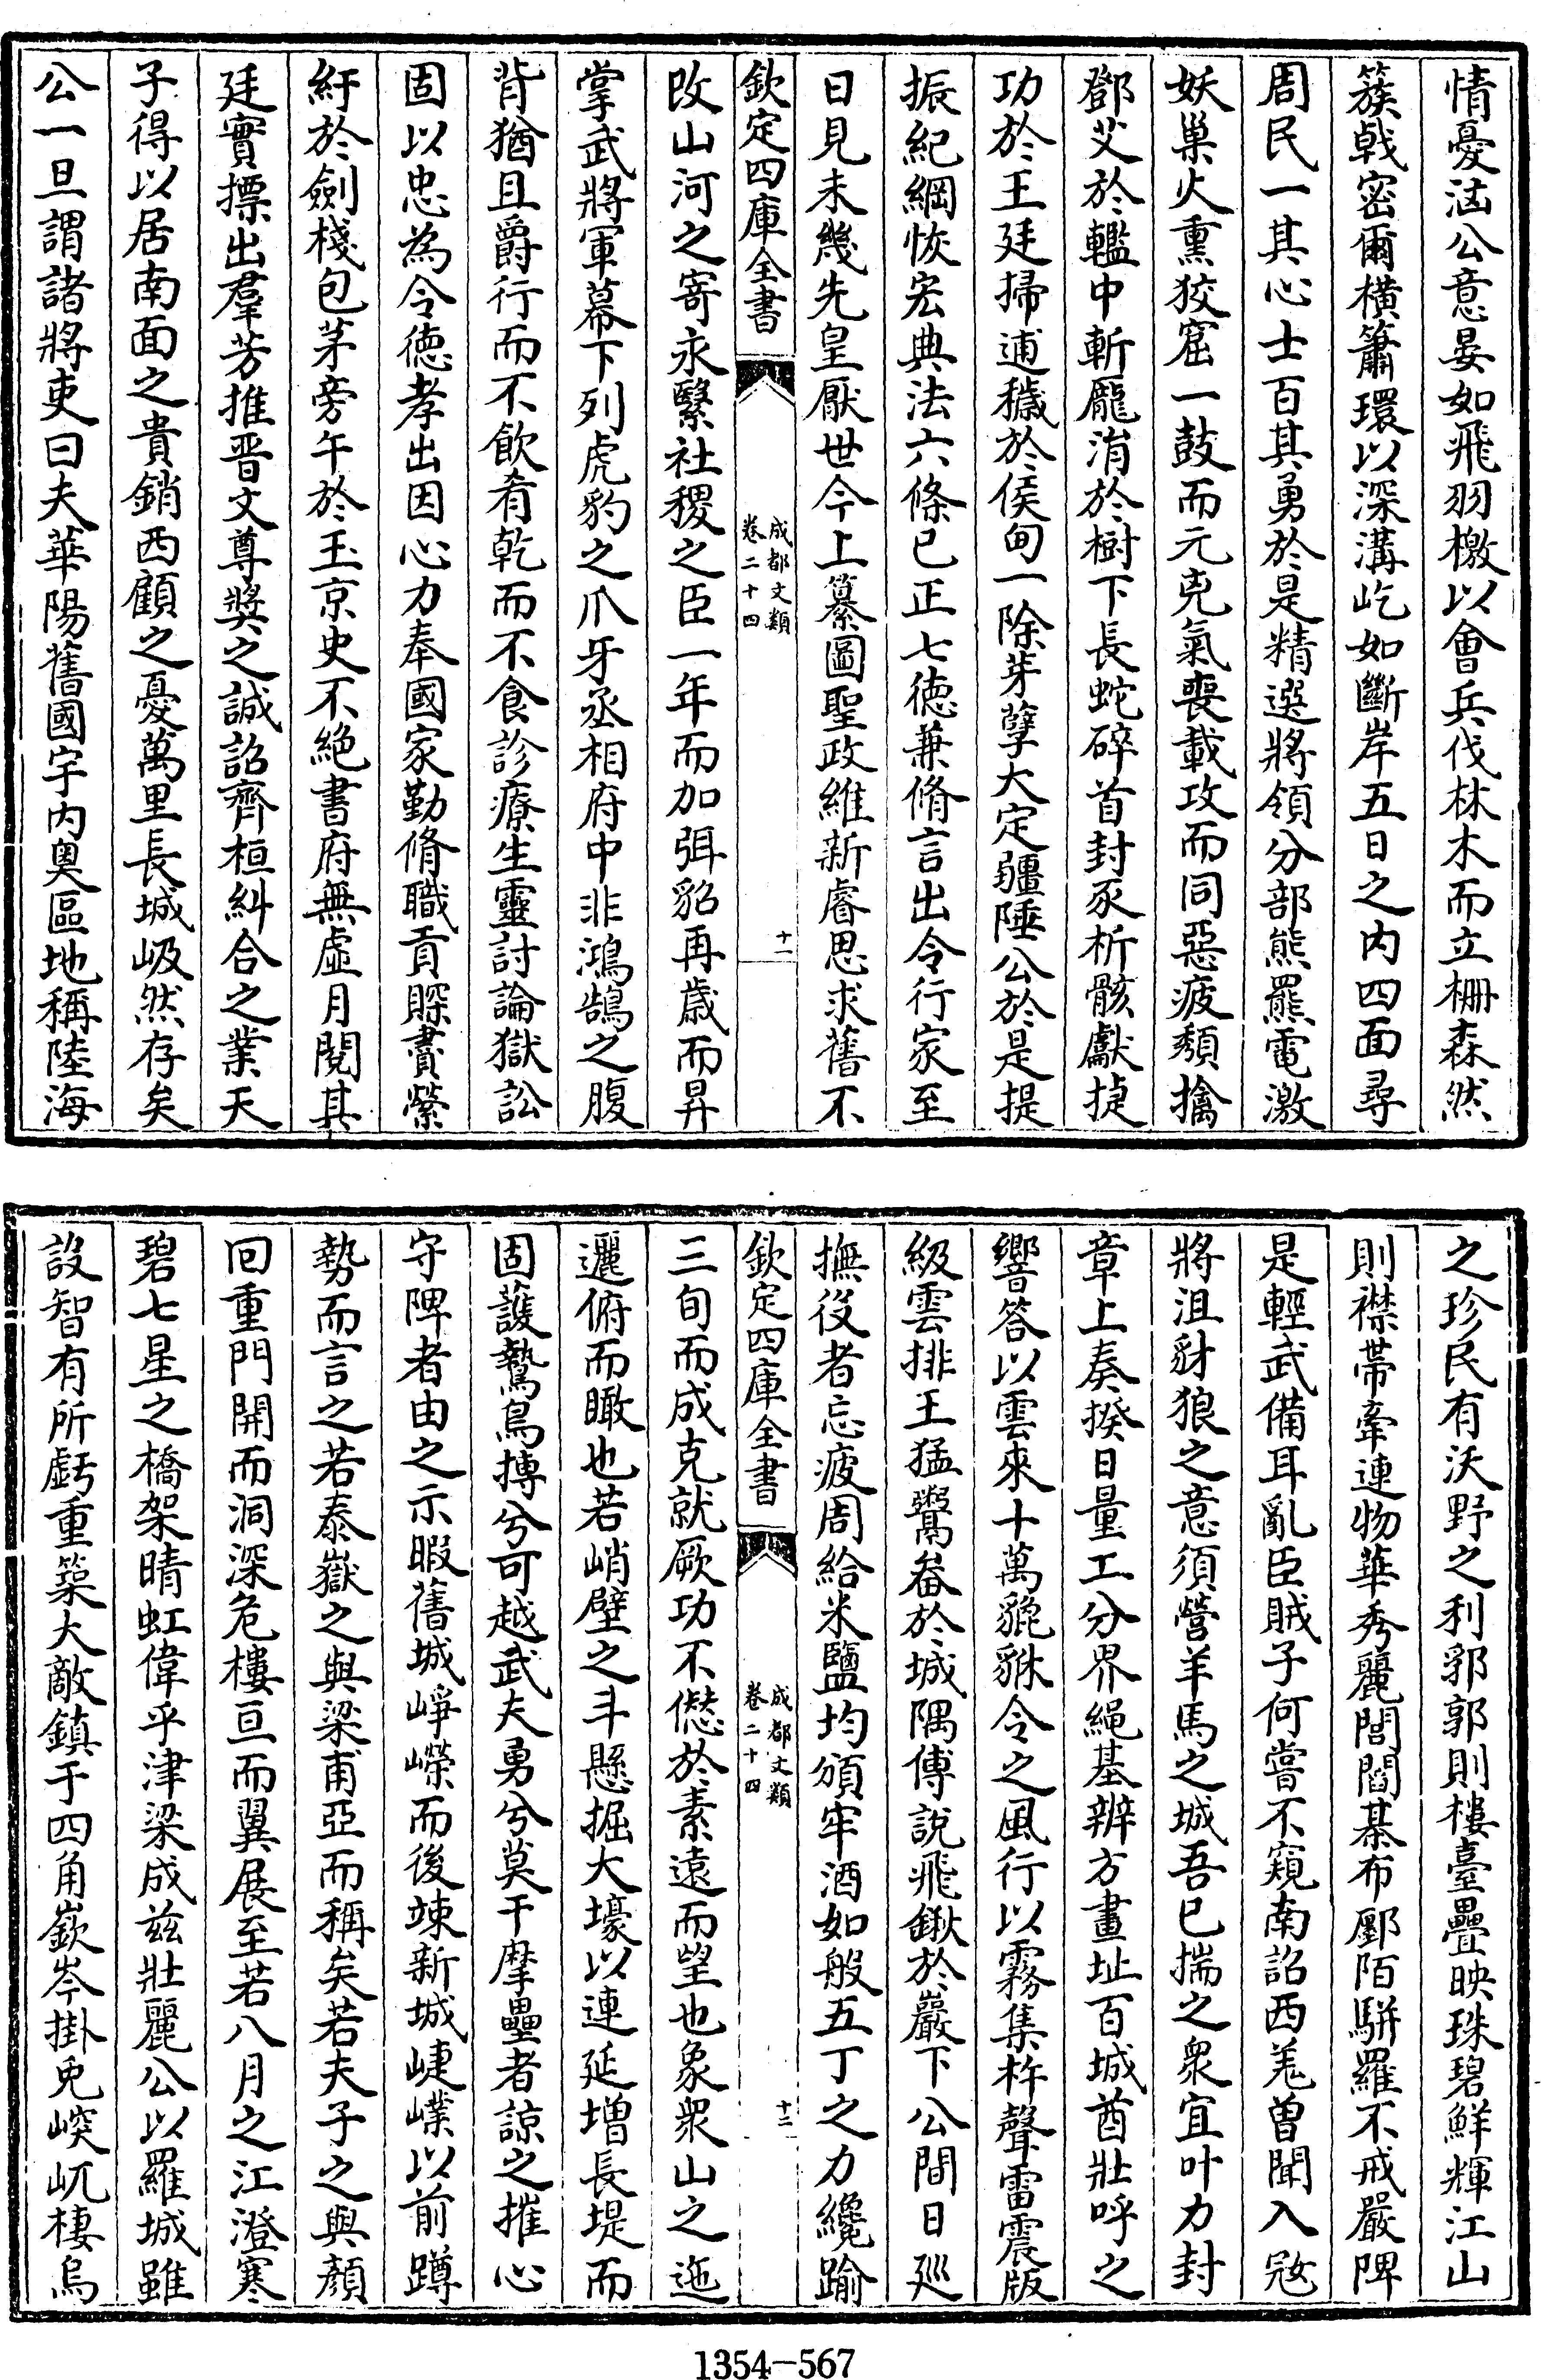 情憂洶公意晏如飛羽檄以會兵伐林木而立柵森然
簇戟密爾橫簫環以深溝屹如斷岸五日之内四面尋
周民一其心士百其勇於是精選將領分部熊羆電激
妖巢火熏狡窟一鼓而元兇氣喪載攻而同惡疲頽擒
鄧艾於轞中斬龎涓於樹下長蛇碎首封豕析骸獻捷
功於王廷掃逋穢於侯甸一除芽孽大定疆陲公於是提
振紀綱恢宏典法六條已正七德兼脩言出令行家至
日見未幾先皇厭世今上纂圖聖政維新睿思求舊不
欽定四庫全書
成都文類
卷二十四
十一
改山河之寄永繄社稷之臣一年而加弭貂再歳而昇
掌武將軍幕下列虎豹之爪牙丞相府中非鴻鵠之腹
背猶且爵行而不飲肴乾而不食診療生靈討論獄訟
固以忠為令德孝出因心力奉國家勤脩職貢賝賮縈
紆於劍棧包茅旁午於玉京史不絶書府無虚月閲其
廷實摽出羣芳推晉文尊奬之誠詔齊桓糾合之業天
子得以居南面之貴銷西顧之憂萬里長城岋然存矣
公一旦謂諸將吏曰夫華陽舊國宇内奥區地稱陸海
之珍民有沃野之利郛郭則樓臺疊映珠碧鮮輝江山
則襟帯牽連物華秀麗閭閻棊布鄽陌駢羅不戒嚴陴
是輕武備耳亂臣賊子何嘗不窺南詔西羌曽聞入宼
將沮豺狼之意須營羊馬之城吾已揣之衆宜叶力封
章上奏揆日量工分界繩基辨方畫址百城酋壯呼之
響答以雲來十萬貔貅令之風行以霧集杵聲雷震版
級雲排王猛鬻畚於城隅傅說飛鍬於巖下公間日廵
撫役者忘疲周給米鹽均頒牢酒如般五丁之力纔踰
欽定四庫全書
成都文類
卷二十四
十二
三旬而成克就厥功不僁於素遠而望也象衆山之迤
邐俯而瞰也若峭壁之斗懸掘大壕以連延増長堤而
固護鷙鳥摶兮可越武夫勇兮莫干摩壘者諒之摧心
守陴者由之示暇舊城崢嶸而後竦新城崨嶪以前蹲
勢而言之若泰嶽之與梁甫亞而稱矣若夫子之與顔
回重門開而洞深危樓亘而翼展至若八月之江澄寒
碧七星之橋架晴虹偉乎津梁成兹壯麗公以羅城雖
設智有所虧重築大敵鎮于四角嶔岑掛兎㟮屼棲烏
1354—567